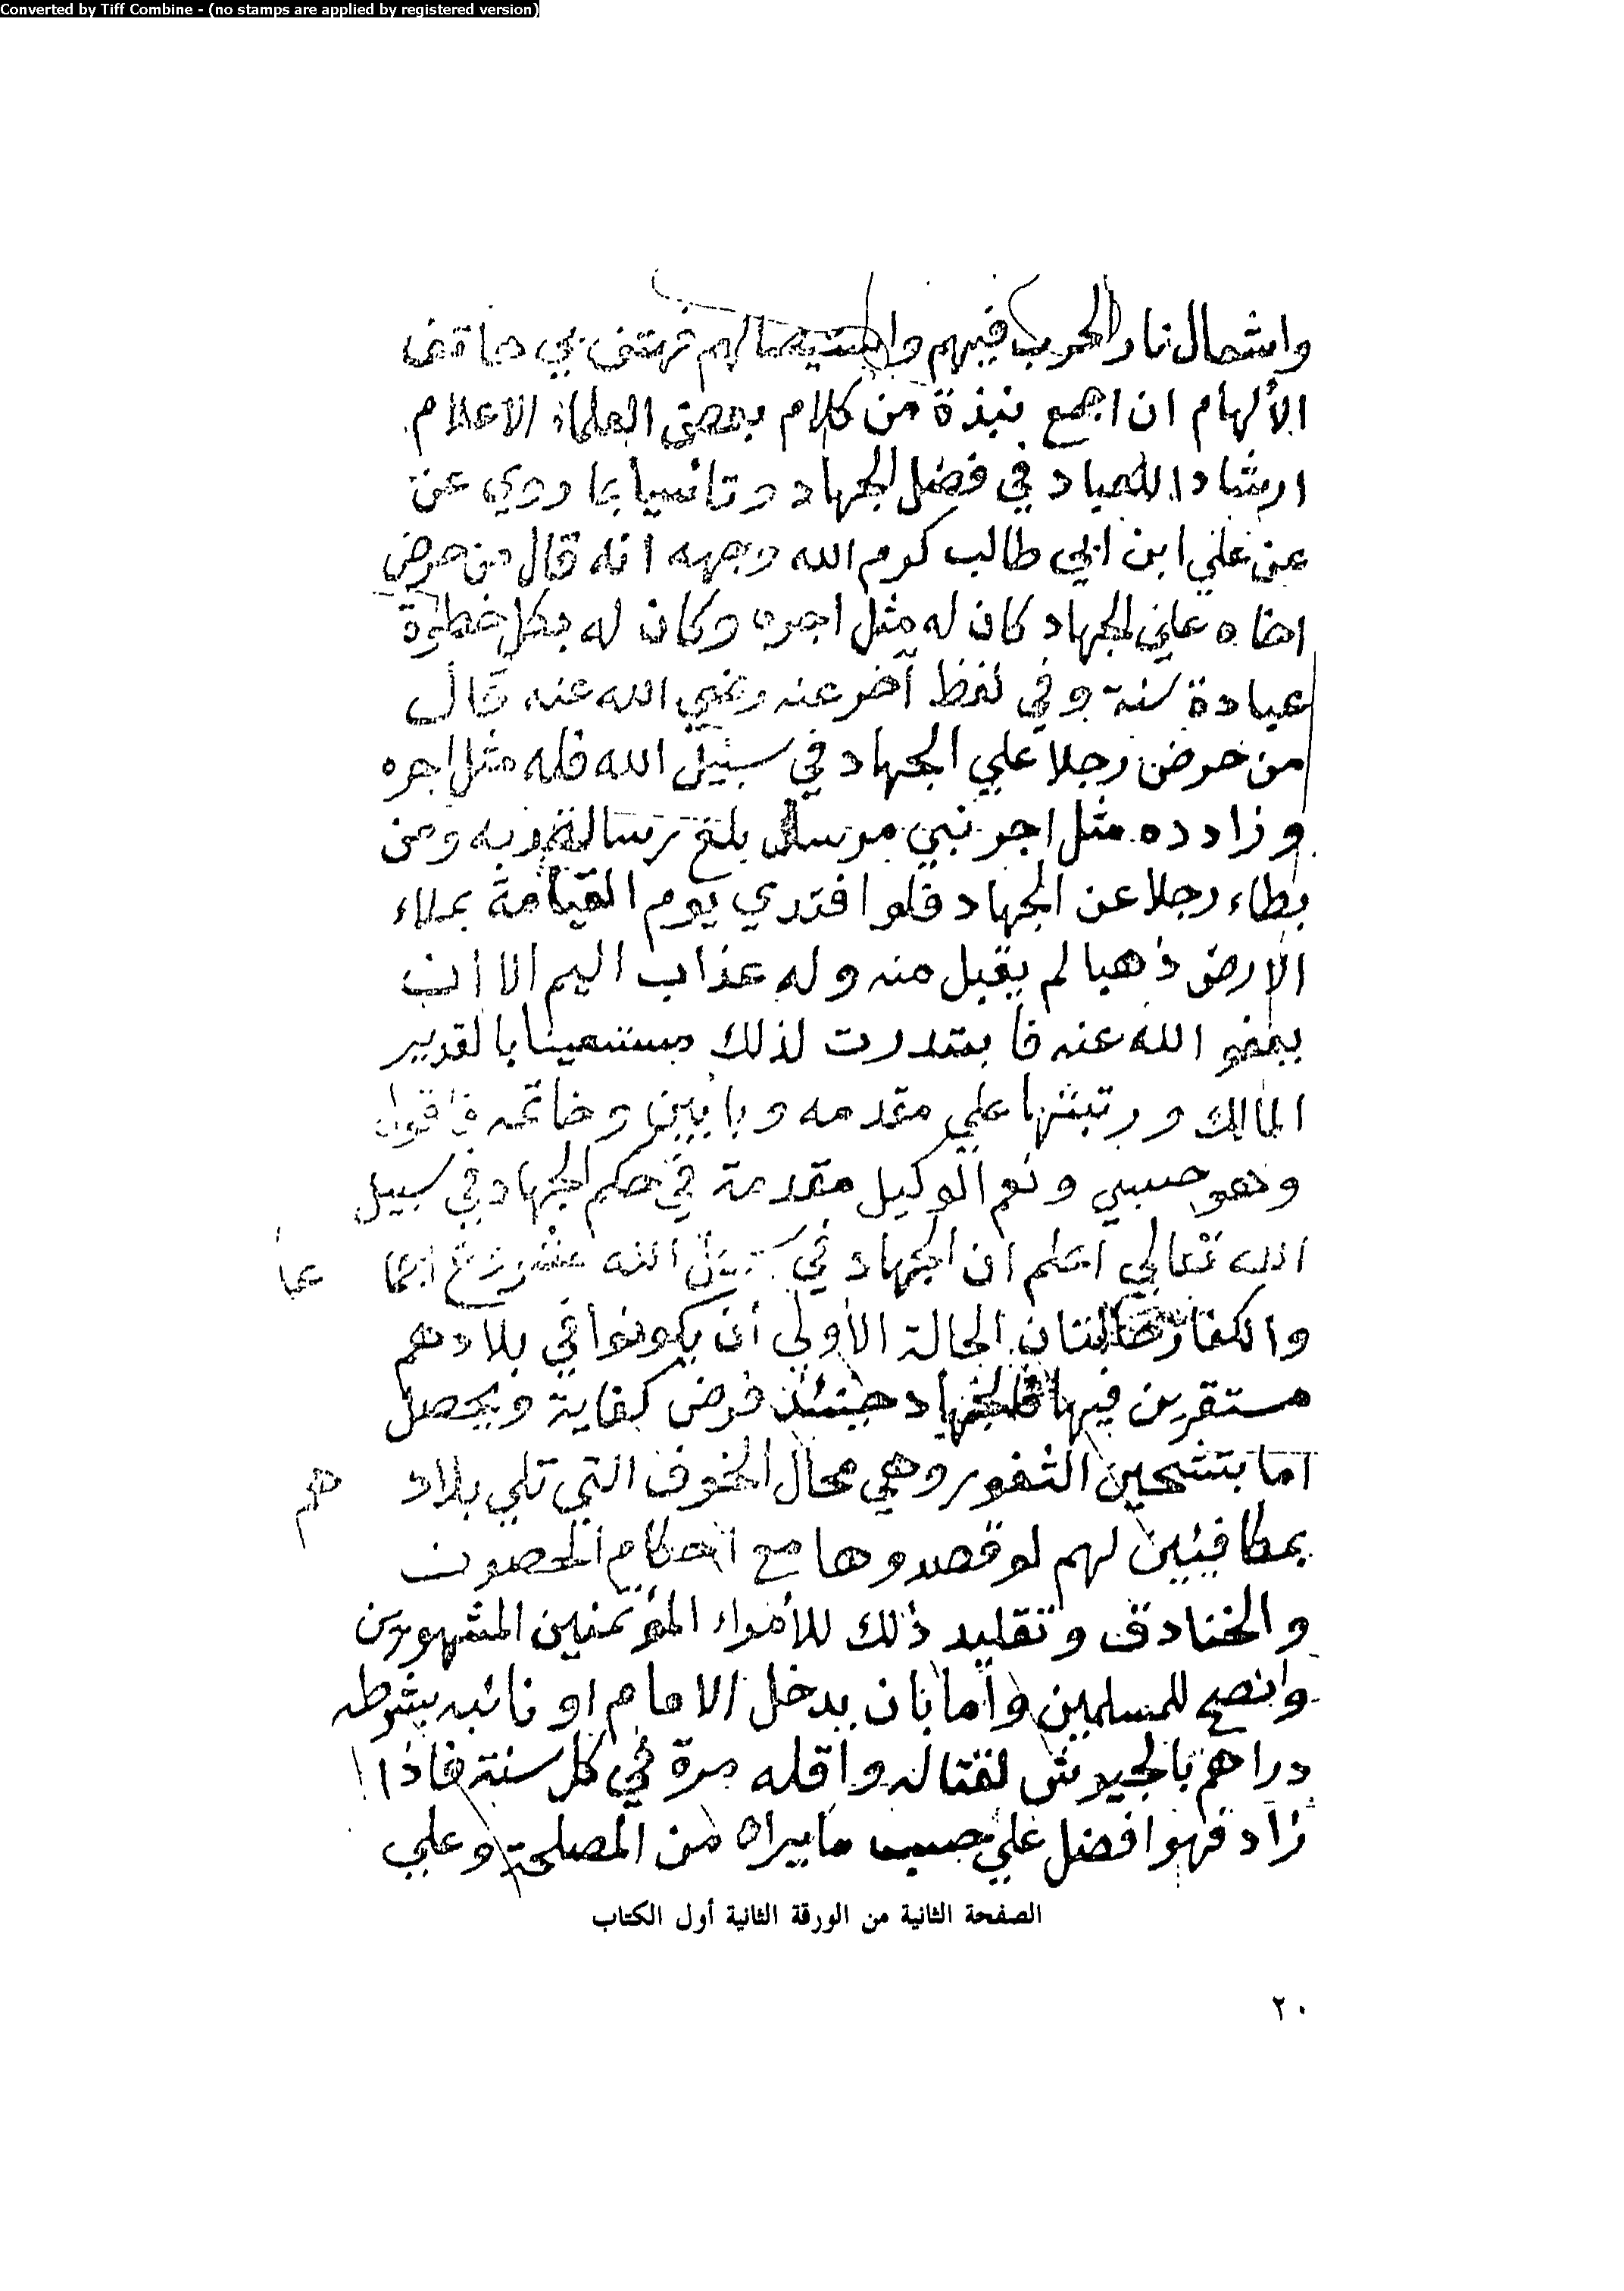 Converted by Tiff Combine - (no stamps are applied by registered version)
واشعال نار الحرب فيهم واستيصالهم فهتف بي هاتف
الألهام ان اجمع نبذة من كلام بعض العلماء الاعلام
ارشادا للعباد في فضل الجهاد وتانسيا بما روي عن
عن علي ابن ابي طالب كرم الله وجهه انه قال من حرض
اخاه علي الجهاد كان له مثل اجره وكان له بكل خطوة
عبادة سنة وفي لفظ آخر عنه رضي الله عنه قال
من حرض رجلا علي الجهاد في سبيل الله فله مثل اجره
وزاده مثل اجر نبي مرسل بلغ رسالة ربه ومن
بطاء رجلا عن الجهاد فلو افتدي يوم القيامة بملاء
الارض ذهبا لم يقبل منه وله عذاب اليم الا ان
يعفو الله عنه فابتدرت لذلك مستعينا بالقدير
المالك ورتبتها علي مقدمه وبابين وخاتمه فاقول
وهو حسبي ونعم الوكيل مقدمة في حكم الجهاد في سبيل
الله تعالي اعلم ان الجهاد في سبيل الله مشروع اجما عا
والكفار حالتان الحالة الأولي أن يكونوا في بلادهم
مستقرين فيها فالجهاد حينئذ فرض كفاية ويحصل
اما بتشحين الثغور وهي محال الخوف التي تلي بلاد هم
بمكافيئين لهم لو قصدوها مع احكام الحصون
والخنادق وتقليد ذلك للأمراء المؤتمنين المشهورين
وانصح للمسلمين وأما بان يدخل الامام او نائبه بشرطه
دراهم بالجيوش لقتاله واقله مرة في كل سنة فاذا
زاد فهو افضل علي حسب مايراه من المصلحة وعلي
الصفحة الثانية من الورقة الثانية أول الكتاب
٢٠